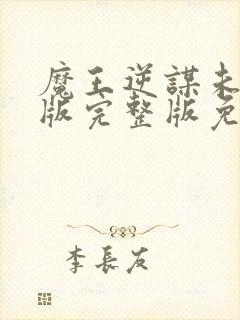 魔王逆謀未
版完整版免
李長友